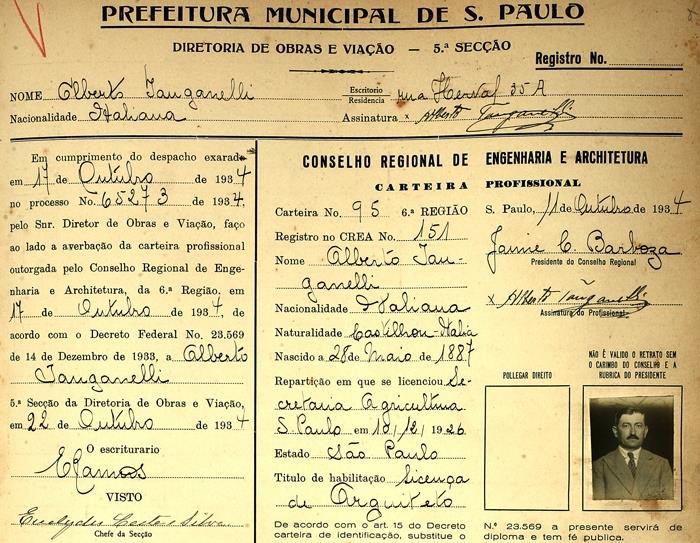 PREFEITURA MUNICIPAL DE S. PAULO
DIRETORIA DE OBRAS E VIAÇÃO — 5.ª SECÇÃO
Registro No.
NOME Alberto Tanganelli
Escritorio
Residencia
rua Herval 35A
Nacionalidade Italiana
Assinatura x Alberto Tanganelli
Em cumprimento do despacho exarado
em 17 de Outubro de 1934
no processo No. 65273 de 1934,
pelo Snr. Diretor de Obras e Viação, faço
ao lado a averbação da carteira profissional
outorgada pelo Conselho Regional de Enge-
nharia e Architetura, da 6.ª Região. em
17 de Outubro de 1934, de
acordo com o Decreto Federal No. 23.569
de 14 de Dezembro de 1933, a Alberto
Tanganelli
5.ª Secção da Diretoria de Obras e Viação,
em 22 de Outubro de 1934
O escriturario
ERamos
VISTO
Chefe da Secção
CONSELHO REGIONAL DE ENGENHARIA E ARCHITETURA
CARTEIRA PROFISSIONAL
Carteira No. 95 6.ª REGIÃO
Registro no CREA No. 151
Nome Alberto Tan-
ganelli
Nacionalidade Italiana
Naturalidade Castilhon-Italia
Nascido a 28 de Maio de 1887
Repartição em que se licenciou Se-
cretaria Agricultura
S. Paulo em 10/2/1926
Estado São Paulo
Titulo de habilitação licença
de Arquiteto
De acordo com o art. 15 do Decreto
carteira de identificação, substitue o
S. Paulo, 11 de Outubro de 1934
Jaime C. Barboza
Presidente do Conselho Regional
x Alberto Tanganelli
Assinatura do Profissional
POLLEGAR DIREITO
NÃO É VALIDO O RETRATO SEM
O CARIMBO DO CONSELHO E A
RUBRICA DO PRESIDENTE
N.º 23.569 a presente servirá de
diploma e tem fé publica.